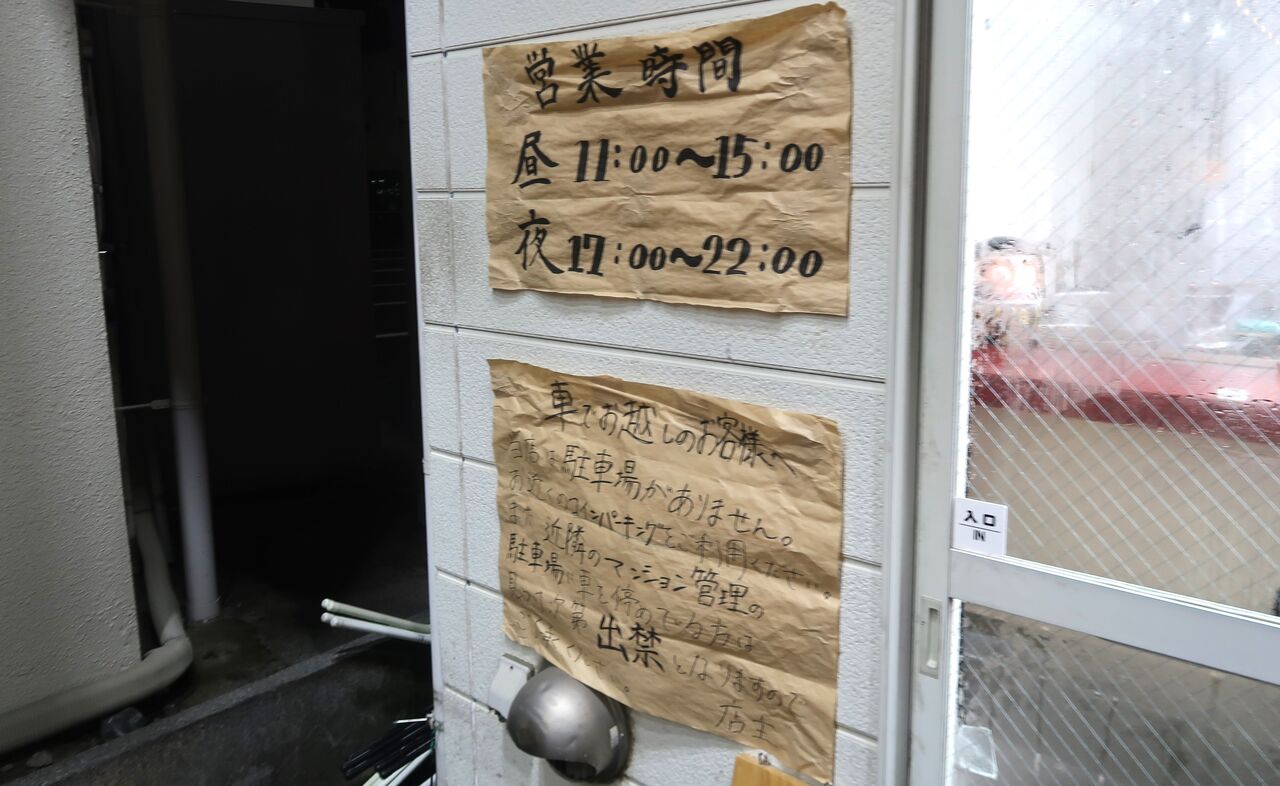 営業時間
昼 11:00〜15:00
夜 17:00〜22:00
車でお越しのお客様へ
当店は駐車場がありません。
お近くのコインパーキングをご利用ください。
また近隣のマンション管理の
駐車場に車を停めている方は
見つけ次第 出禁となりますので
店主
入口
IN